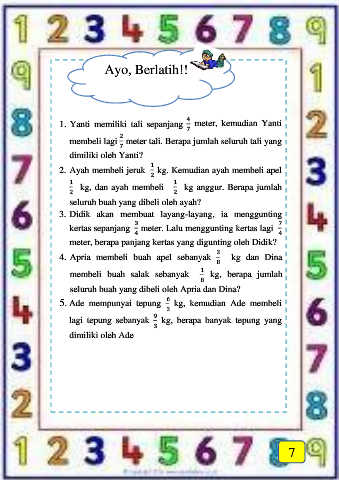 1 2 3 4 5 6 7 8 9
Ayo, Berlatih!!
1. Yanti memiliki tali sepanjang 4/7 meter, kemudian Yanti
membeli lagi 2/7 meter tali. Berapa jumlah seluruh tali yang
dimiliki oleh Yanti?
2. Ayah membeli jeruk 1/2 kg. Kemudian ayah membeli apel
1/2 kg, dan ayah membeli 1/2 kg anggur. Berapa jumlah
seluruh buah yang dibeli oleh ayah?
3. Didik akan membuat layang-layang, ia menggunting
kertas sepanjang 3/4 meter. Lalu menggunting kertas lagi 7/4
meter, berapa panjang kertas yang digunting oleh Didik?
4. Apria membeli buah apel sebanyak kg dan Dina
membeli buah salak sebanyak kg, berapa jumlah
seluruh buah yang dibeli oleh Apria dan Dina?
5. Ade mempunyai tepung kg, kemudian Ade membeli
lagi tepung sebanyak 9/3 kg, berapa banyak tepung yang
dimiliki oleh Ade
9
8
7
6
5
4
3
2
1
2
3
4
5
6
7
8
1 2 3 4 5 6 7 8 9
7